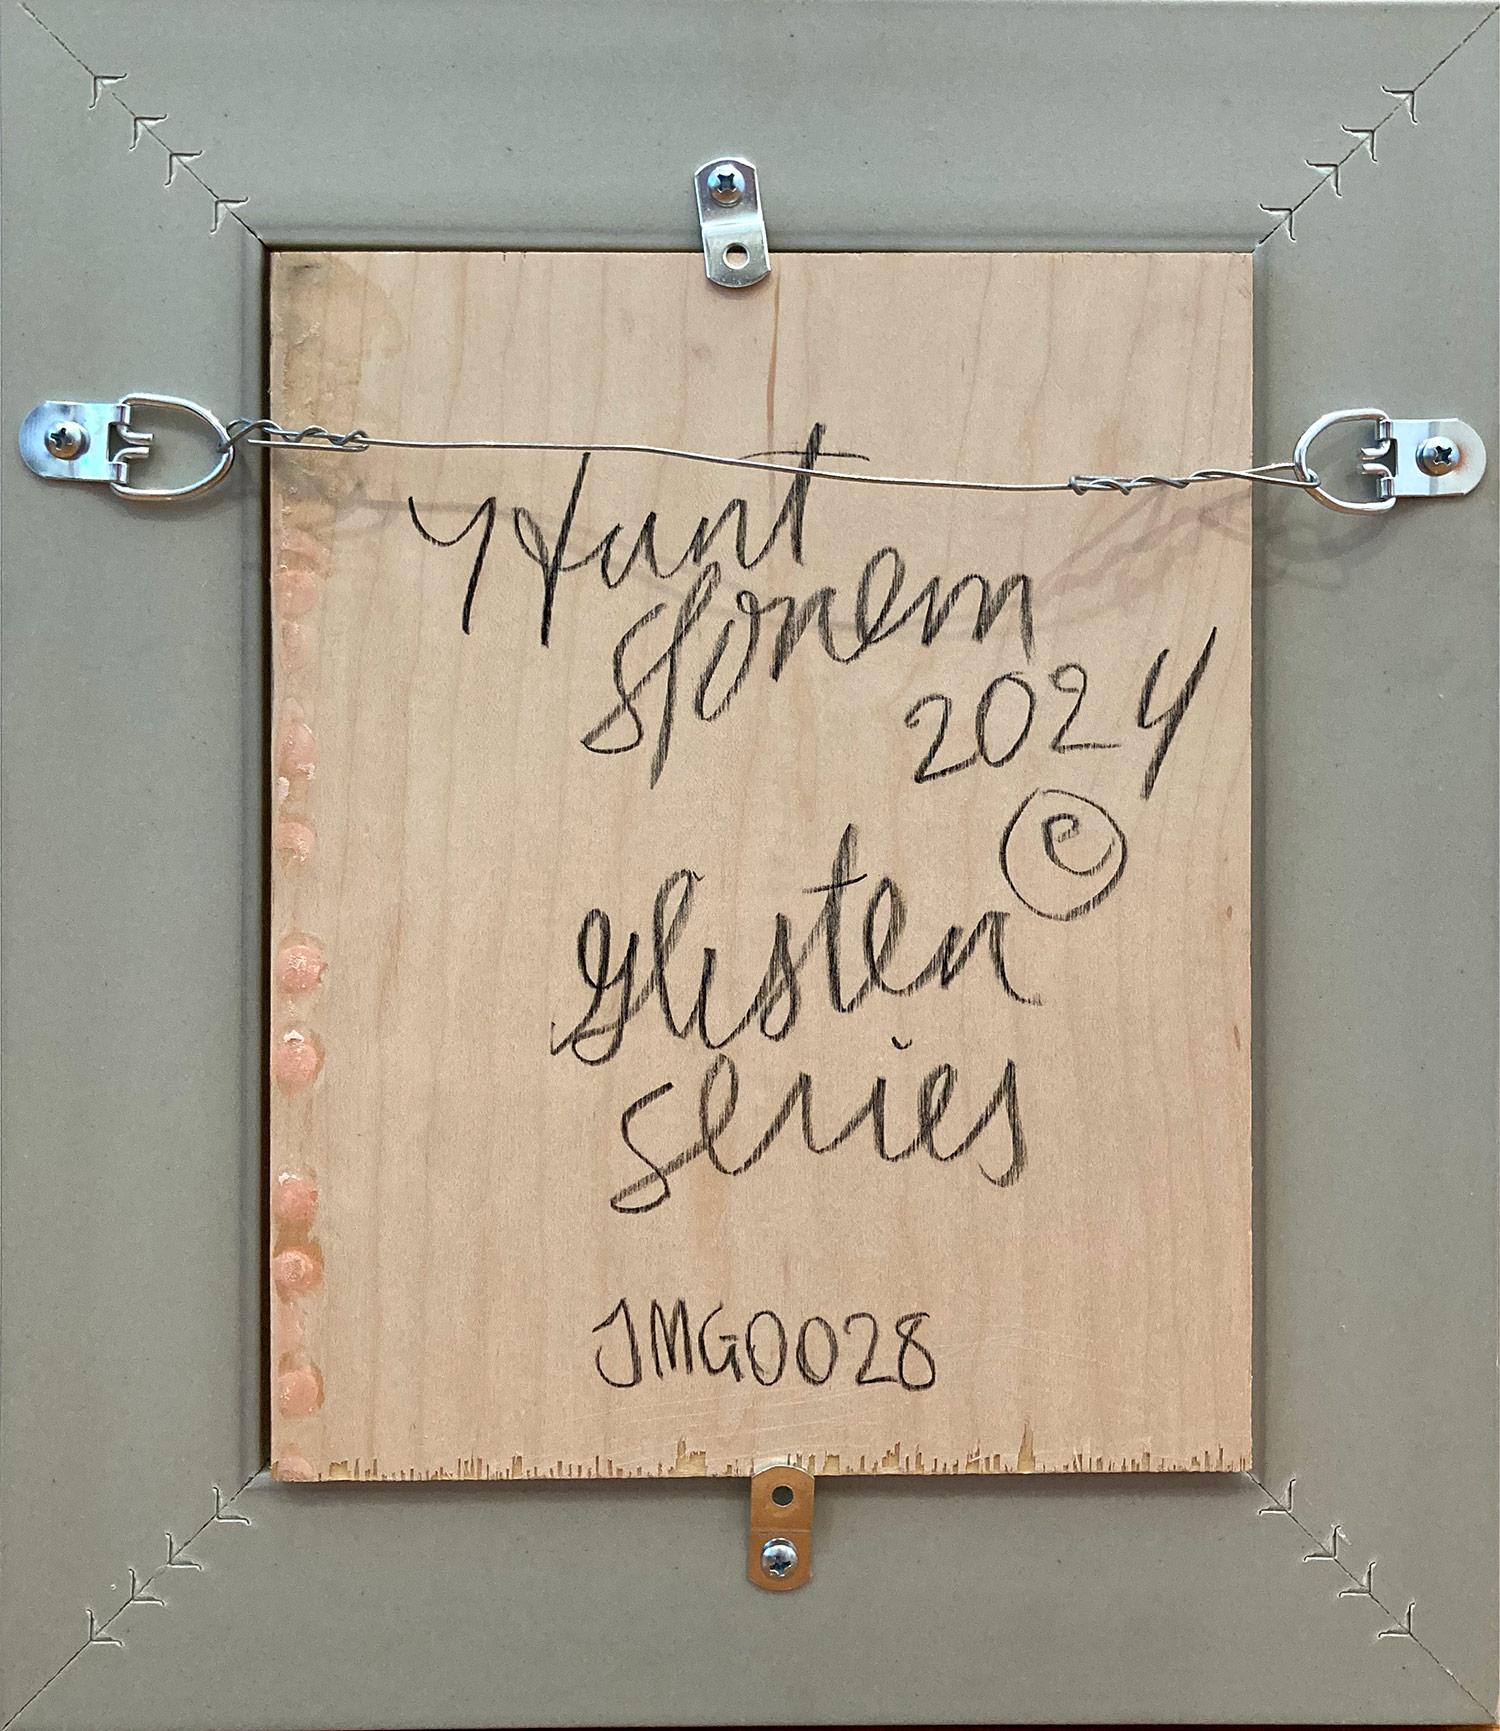 Hunt
Slonem
2024
©
Glisten
Series
JMG0028